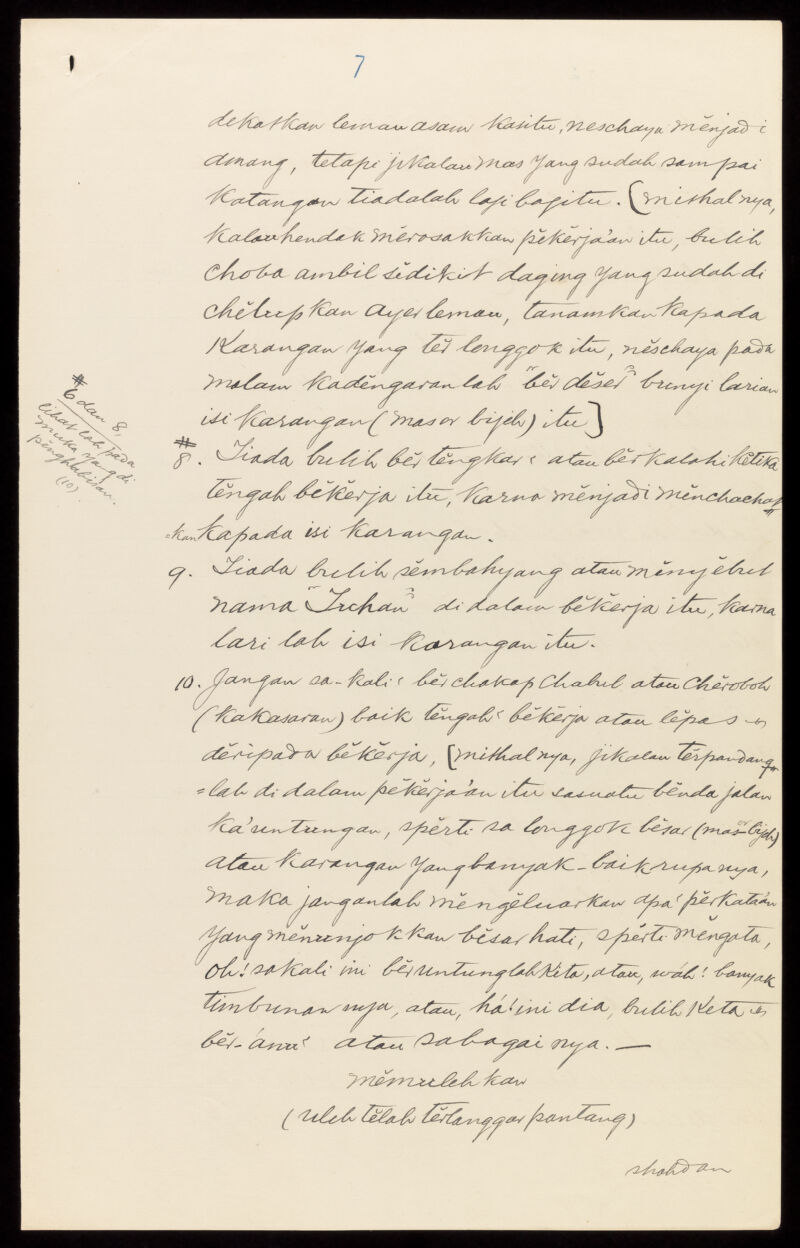 7
dekatkan leman asam kasitu, neschaya mĕnjadi
amang, tetapi jikalau mas yang sudah sampai
katangan tiadalah lagi bagitu. [misthal nya,
kalau hendak mĕrosakkan pĕkĕrja'an itu, bulih
choba ambil sĕdikit daging yang sudah di
chĕlupkan ayer leman, tanamkan kapada
Karangan yang tĕr longgok itu, nĕschaya pada
malam kadĕngaran lah "bĕr dĕser" bunyi larian
isi karangan (mas or bijeh) itu]
# 8. Tiada bulih bĕr tĕngkar² atau bĕrkalahi kĕtika
tĕngah bĕkĕrja itu, karna mĕnjadi mĕnchachat
=kan kapada isi karangan.
9. Tiada bulih sĕmbahyang atau mĕnyĕbut
nama "Tuhan" di dalam bĕkĕrja itu, karna
lari lah isi karangan itu.
10. Jangan sa-kali² bĕrchakap Chabul atau Chĕroboh
(kakasaran) baik tĕngah² bĕkĕrja atau lĕpas
dĕripada bĕkĕrja, [misthal nya, jikalau tĕrpandang
=lah di dalam pĕkĕrja'an itu sasuatu bĕnda jalan
ka'untungan, spĕrti sa longgok bĕsar (mas or bijeh)
atau karangan yang banyak-baik rupa nya,
maka janganlah mĕngĕluarkan apa² pĕrkata'an
yang mĕnunjokkan bĕsar hati, spĕrti mĕngata,
oh! sakali ini bĕruntunglah kita, atau, wah! banyak
timbunan nya, atau, ha! ini dia, bulih Keta
bĕr-anu² atau sabagai nya. —
mĕmulehkan
(uleh tĕlah tĕrlanggar pantang)
shahdan
# 6 dan 8,
lihat lah pada
muka yang di
pĕnghabisan.
(10)